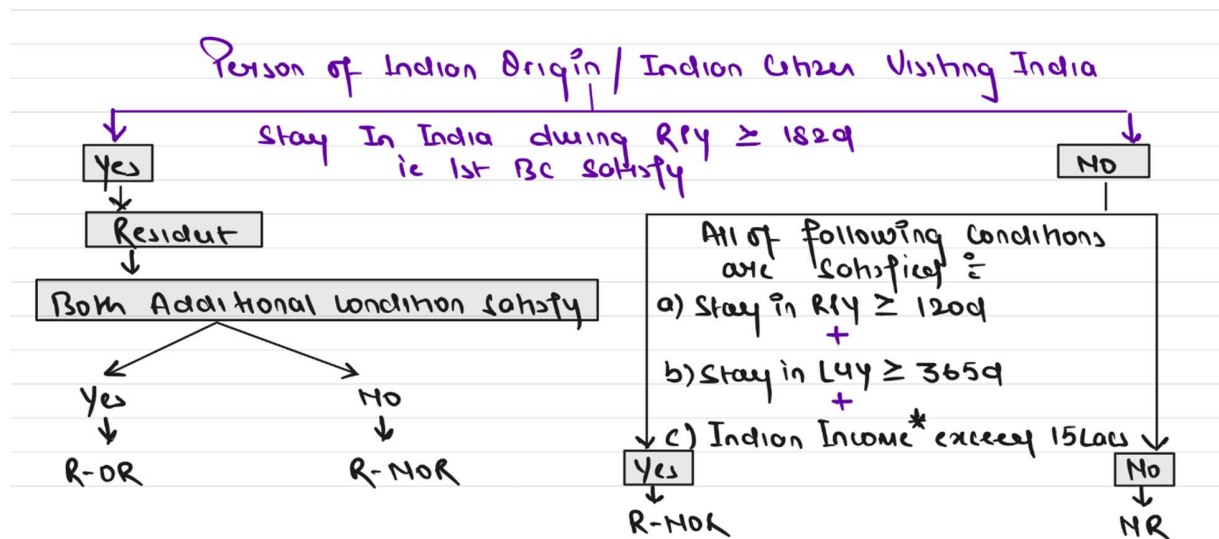 Person of Indian Origin / Indian Citizen Visiting India
Stay In India during RPY ≥ 182d
ie 1st BC Satisfy
Yes
NO
Resident
Both Additional Condition Satisfy
Yes
No
R-OR
R-NOR
All of following Conditions
are Satisfied :-
a) Stay in RPY ≥ 120d
+
b) Stay in L4Y ≥ 365d
+
c) Indian Income* exceed 15Lacs
Yes
No
R-NOR
NR